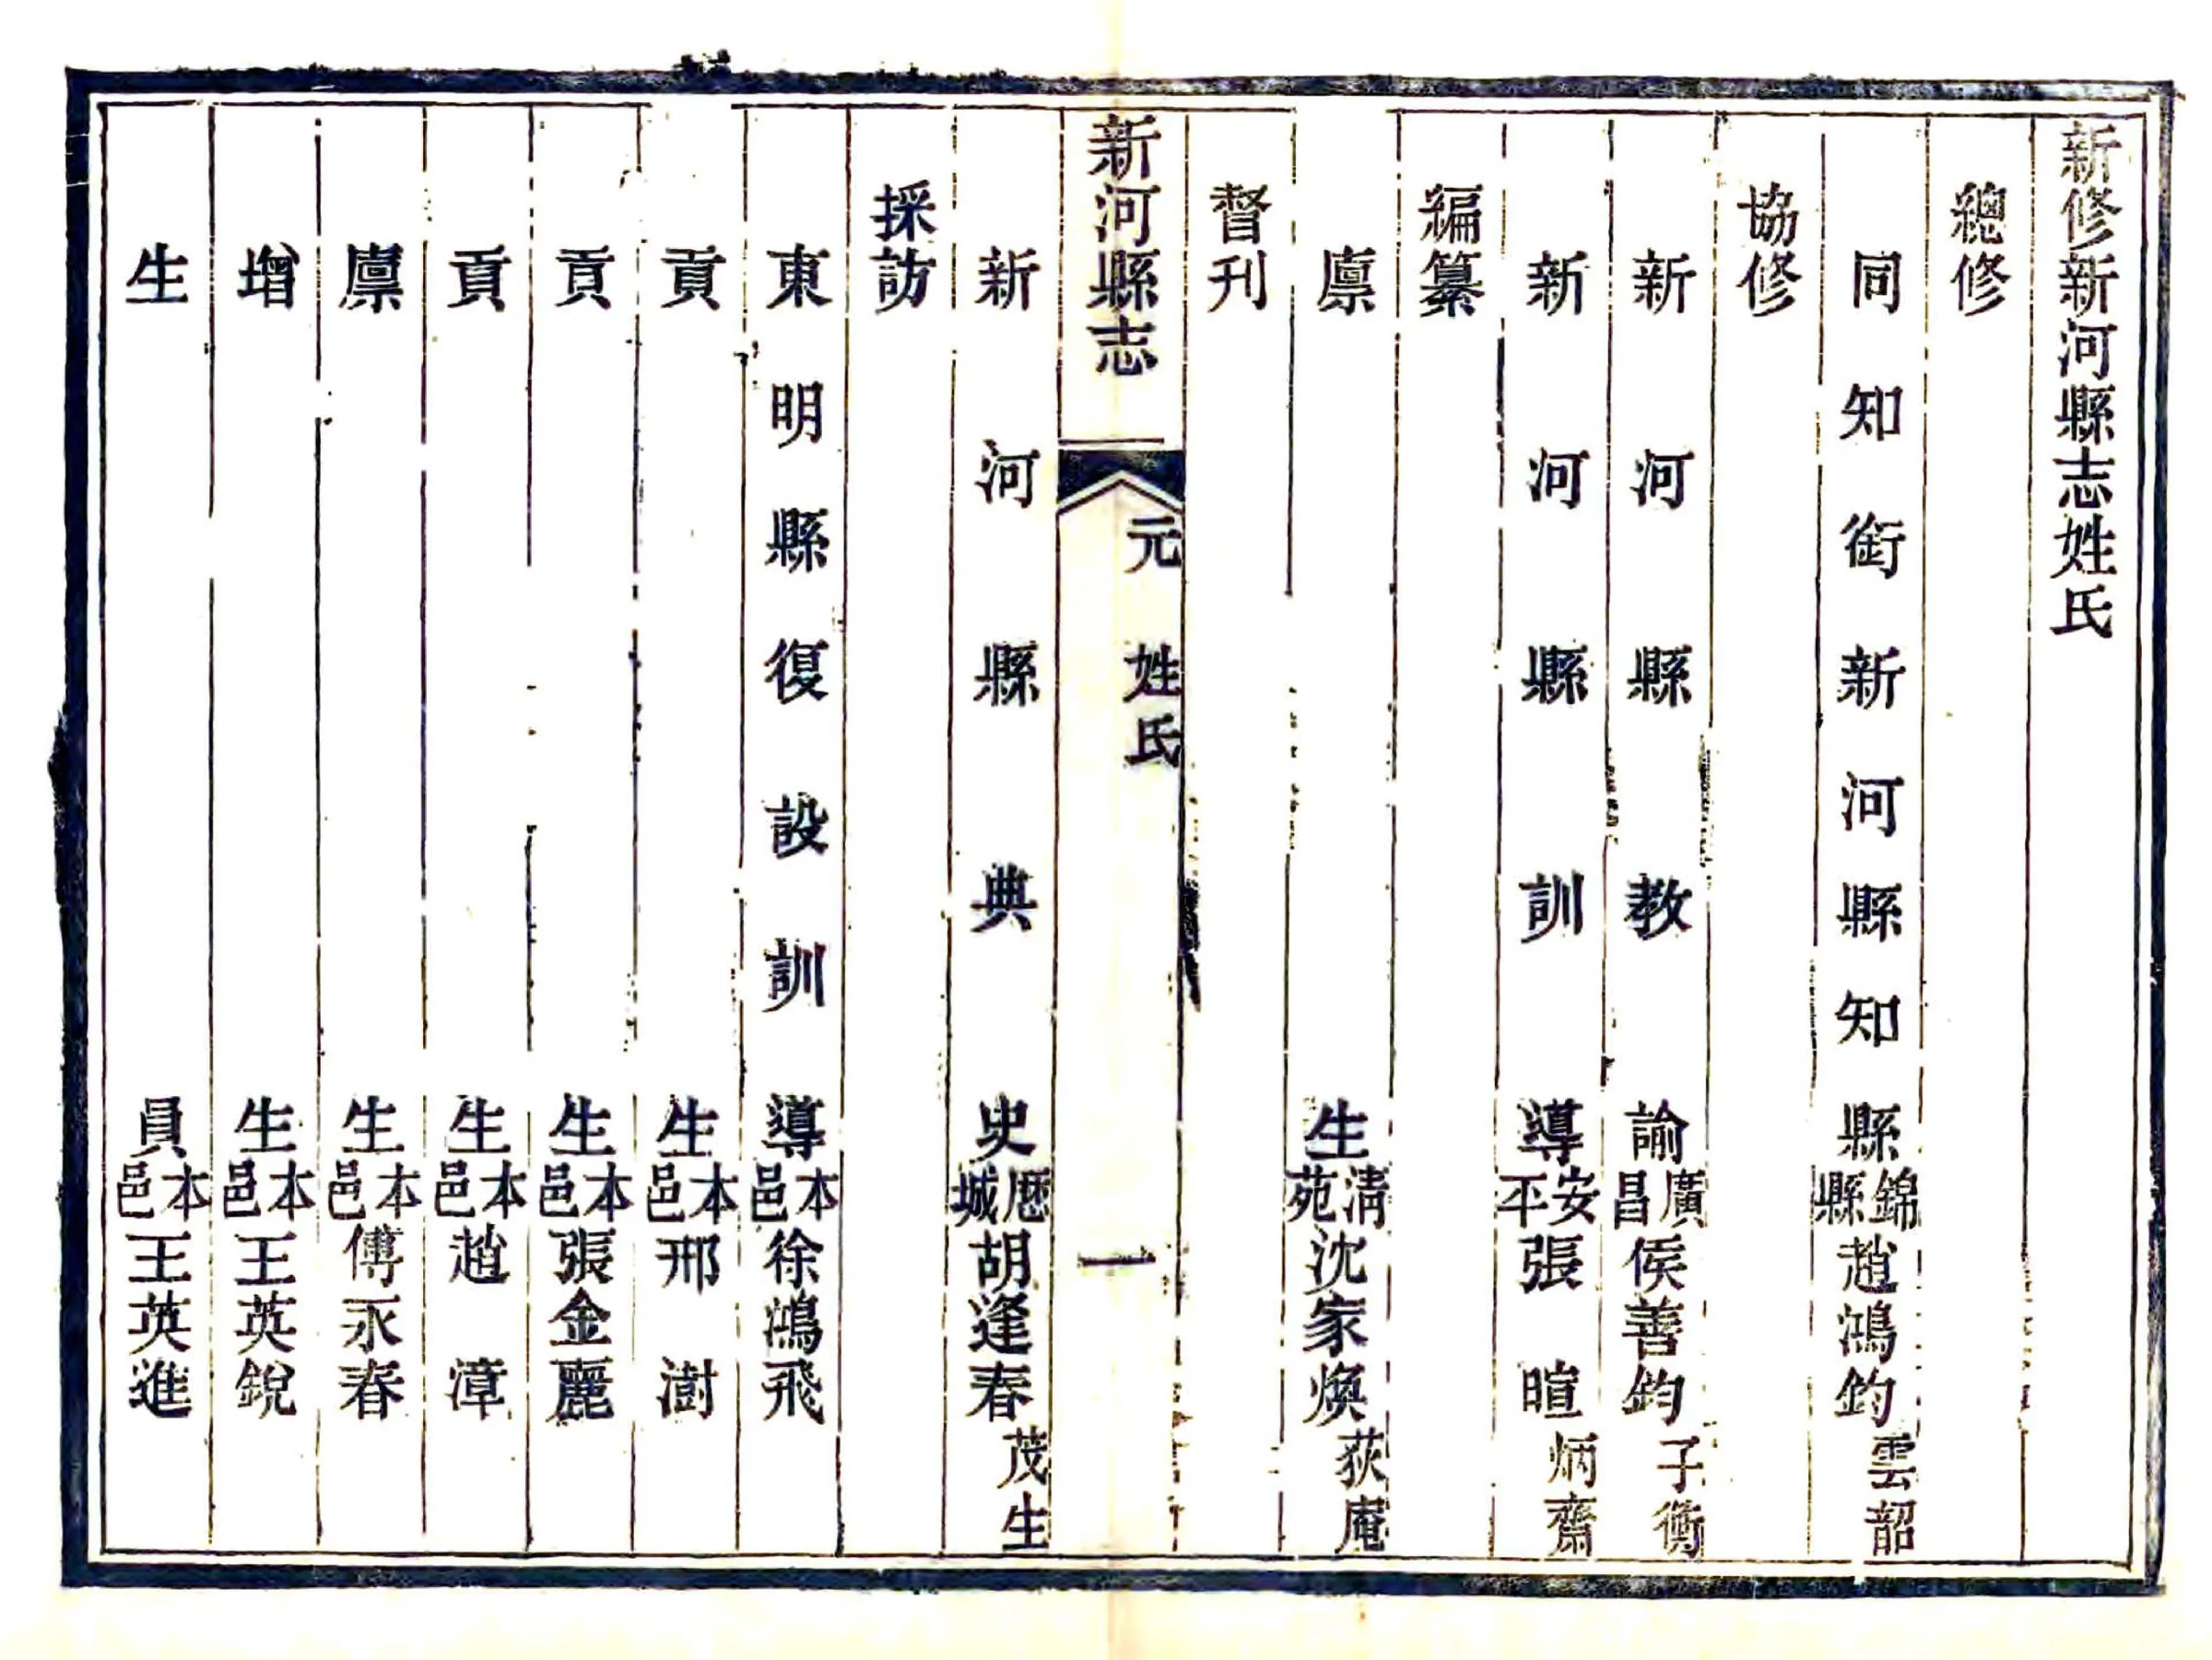 新修新河縣志姓氏
總修
同知銜新河縣知縣錦縣趙鴻鈞雲韶
協修
新河縣教諭廣昌侯善鈞子衡
新河縣訓導安平張暄炳齋
編纂
廪生清苑沈家煥荻庵
督刊
新河縣志 元 姓氏 一
新河縣典史歷城胡逢春茂生
採訪
東明縣復設訓導本邑徐鴻飛
貢生本邑邢澍
貢生本邑張金麗
貢生本邑趙漳
廪生本邑傅永春
增生本邑王英銳
生員本邑王英進